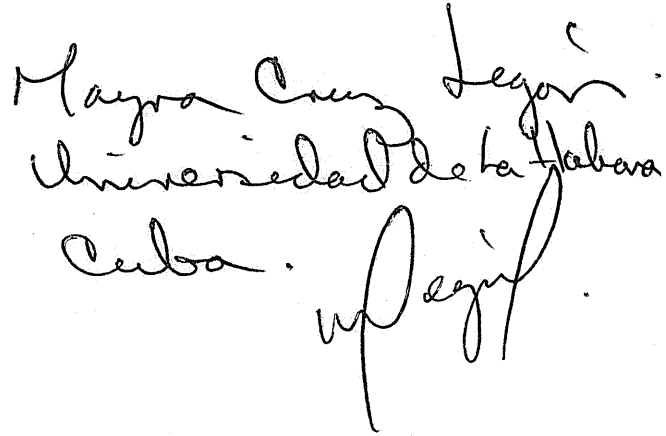 Mayra Cruz Legón.
Universidad de La Habana
Cuba.